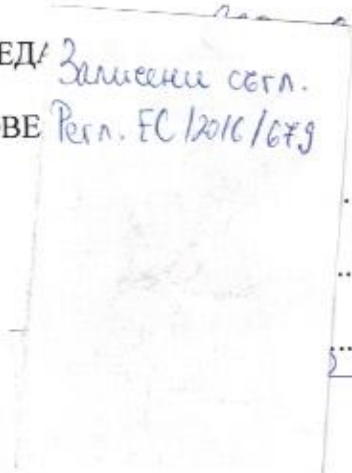 ЕДА
Заличени съгл.
ОВЕ Регл. ЕС/2016/679